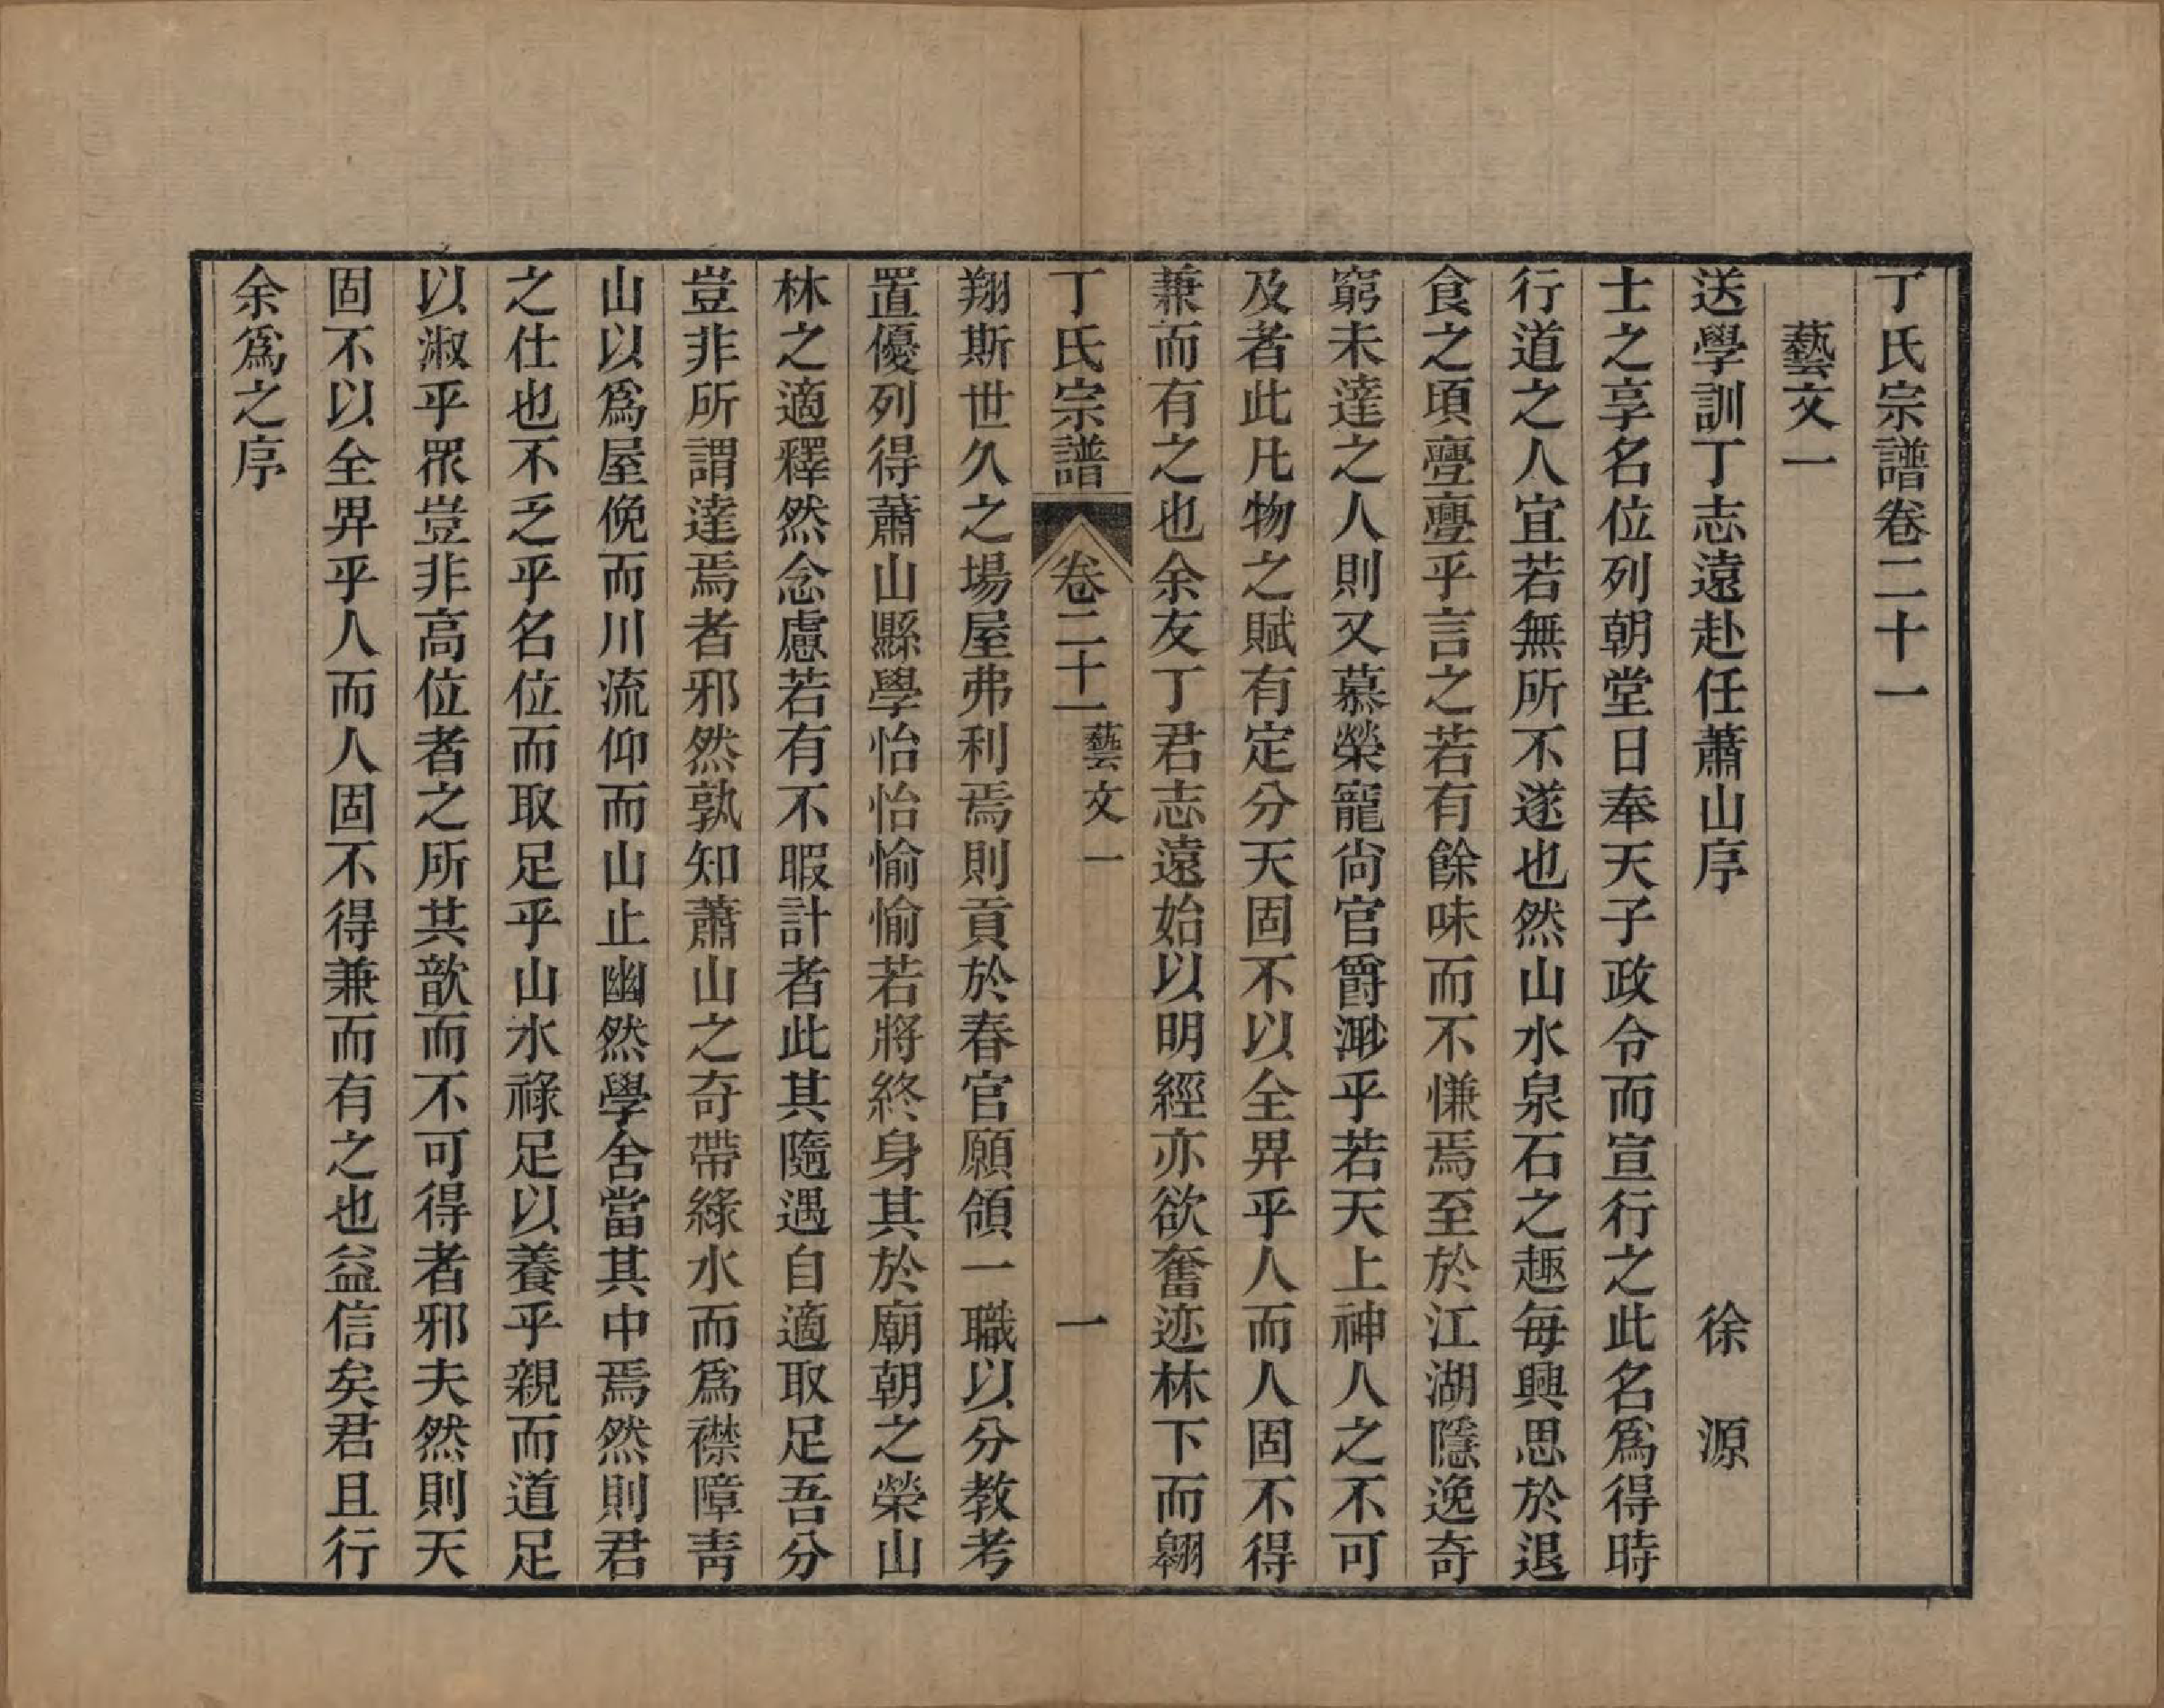 丁氏宗譜卷二十一
藝文一
送學訓丁志遠赴任蕭山序 徐 源
士之享名位列朝堂日奉天子政令而宣行之此名爲得時
行道之人宜若無所不遂也然山水泉石之趣每興思於退
食之頃亹亹乎言之若有餘味而不慊焉至於江湖隱逸奇
窮未達之人則又慕榮寵尙官爵渺乎若天上神人之不可
及者此凡物之賦有定分天固不以全畀乎人而人固不得
兼而有之也余友丁君志遠始以明經亦欲奮迹林下而翱
丁氏宗譜 卷二十一 藝文一 一
翔斯世久之場屋弗利焉則貢於春官願領一職以分教考
置優列得蕭山縣學怡怡愉愉若將終身其於廟朝之榮山
林之適釋然念慮若有不暇計者此其隨遇自適取足吾分
豈非所謂達焉者邪然孰知蕭山之奇帶綠水而爲襟障靑
山以爲屋俛而川流仰而山止幽然學舍當其中焉然則君
之仕也不乏乎名位而取足乎山水祿足以養乎親而道足
以淑乎眾豈非高位者之所共歆而不可得者邪夫然則天
固不以全畀乎人而人固不得兼而有之也益信矣君且行
余爲之序